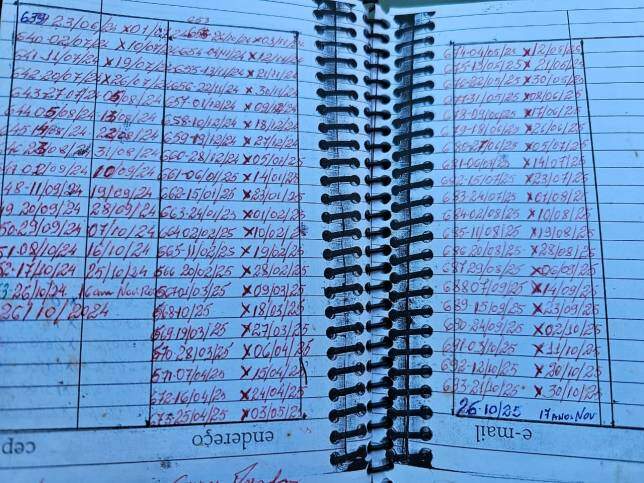 639 23/06/24 x 01/0
640-02/07/24 x 10/07/24
641-11/07/24 x 19/07/24
642-20/07/24 x 26/07/24
643-27/07/24 05/08/24
644-05/08/24 13/08/24
645-14/08/24 22/08/24
646-23/08/24 31/08/24
02/09/24 10/09/24
48-11/09/24 19/09/24
49-20/09/24 28/09/24
50-29/09/24 07/10/24
51-08/10/24 16/10/24
52-17/10/24 25/10/24
26/10/24
26/10/2024
653
654-04/11/24 x 12/11/24
655-13/11/24 x 21/11/24
656-22/11/24 x 30/11/24
657-01/12/24 x 09/12/24
658-10/12/24 x 18/12/24
659-19/12/24 x 27/12/24
660-28/12/24 x 05/01/25
661-06/01/25 x 14/01/25
662-15/01/25 x 23/01/25
663-24/01/25 x 01/02/25
664 02/02/25 x 10/02/25
665 11/02/25 x 19/02/25
566 20/02/25 x 28/02/25
567 01/03/25 x 09/03/25
568-10/25 x 18/03/25
569-19/03/25 x 27/03/25
570-28/03/25 x 06/04/25
571-07/04/25 x 15/04/25
672-16/04/25 x 24/04/25
673-25/04/25 x 03/05/25
cep
endereço
674-04/05/25 x 12/05/25
675-13/05/25 x 21/05/25
676-22/05/25 x 30/05/25
677-31/05/25 x 08/06/25
678-09/06/25 x 17/06/25
679-18/06/25 x 26/06/25
680-27/06/25 x 05/07/25
681-06/07/25 x 14/07/25
682-15/07/25 x 23/07/25
683-24/07/25 x 01/08/25
684-02/08/25 x 10/08/25
685-11/08/25 x 19/08/25
686 20/08/25 x 28/08/25
687 29/08/25 x 06/09/25
688 07/09/25 x 14/09/25
689-15/09/25 x 23/09/25
690-24/09/25 x 02/10/25
691-03/10/25 x 11/10/25
692-12/10/25 x 20/10/25
693-21/10/25 x 30/10/25
26-10/25 17 ANOS NOV
e-mail